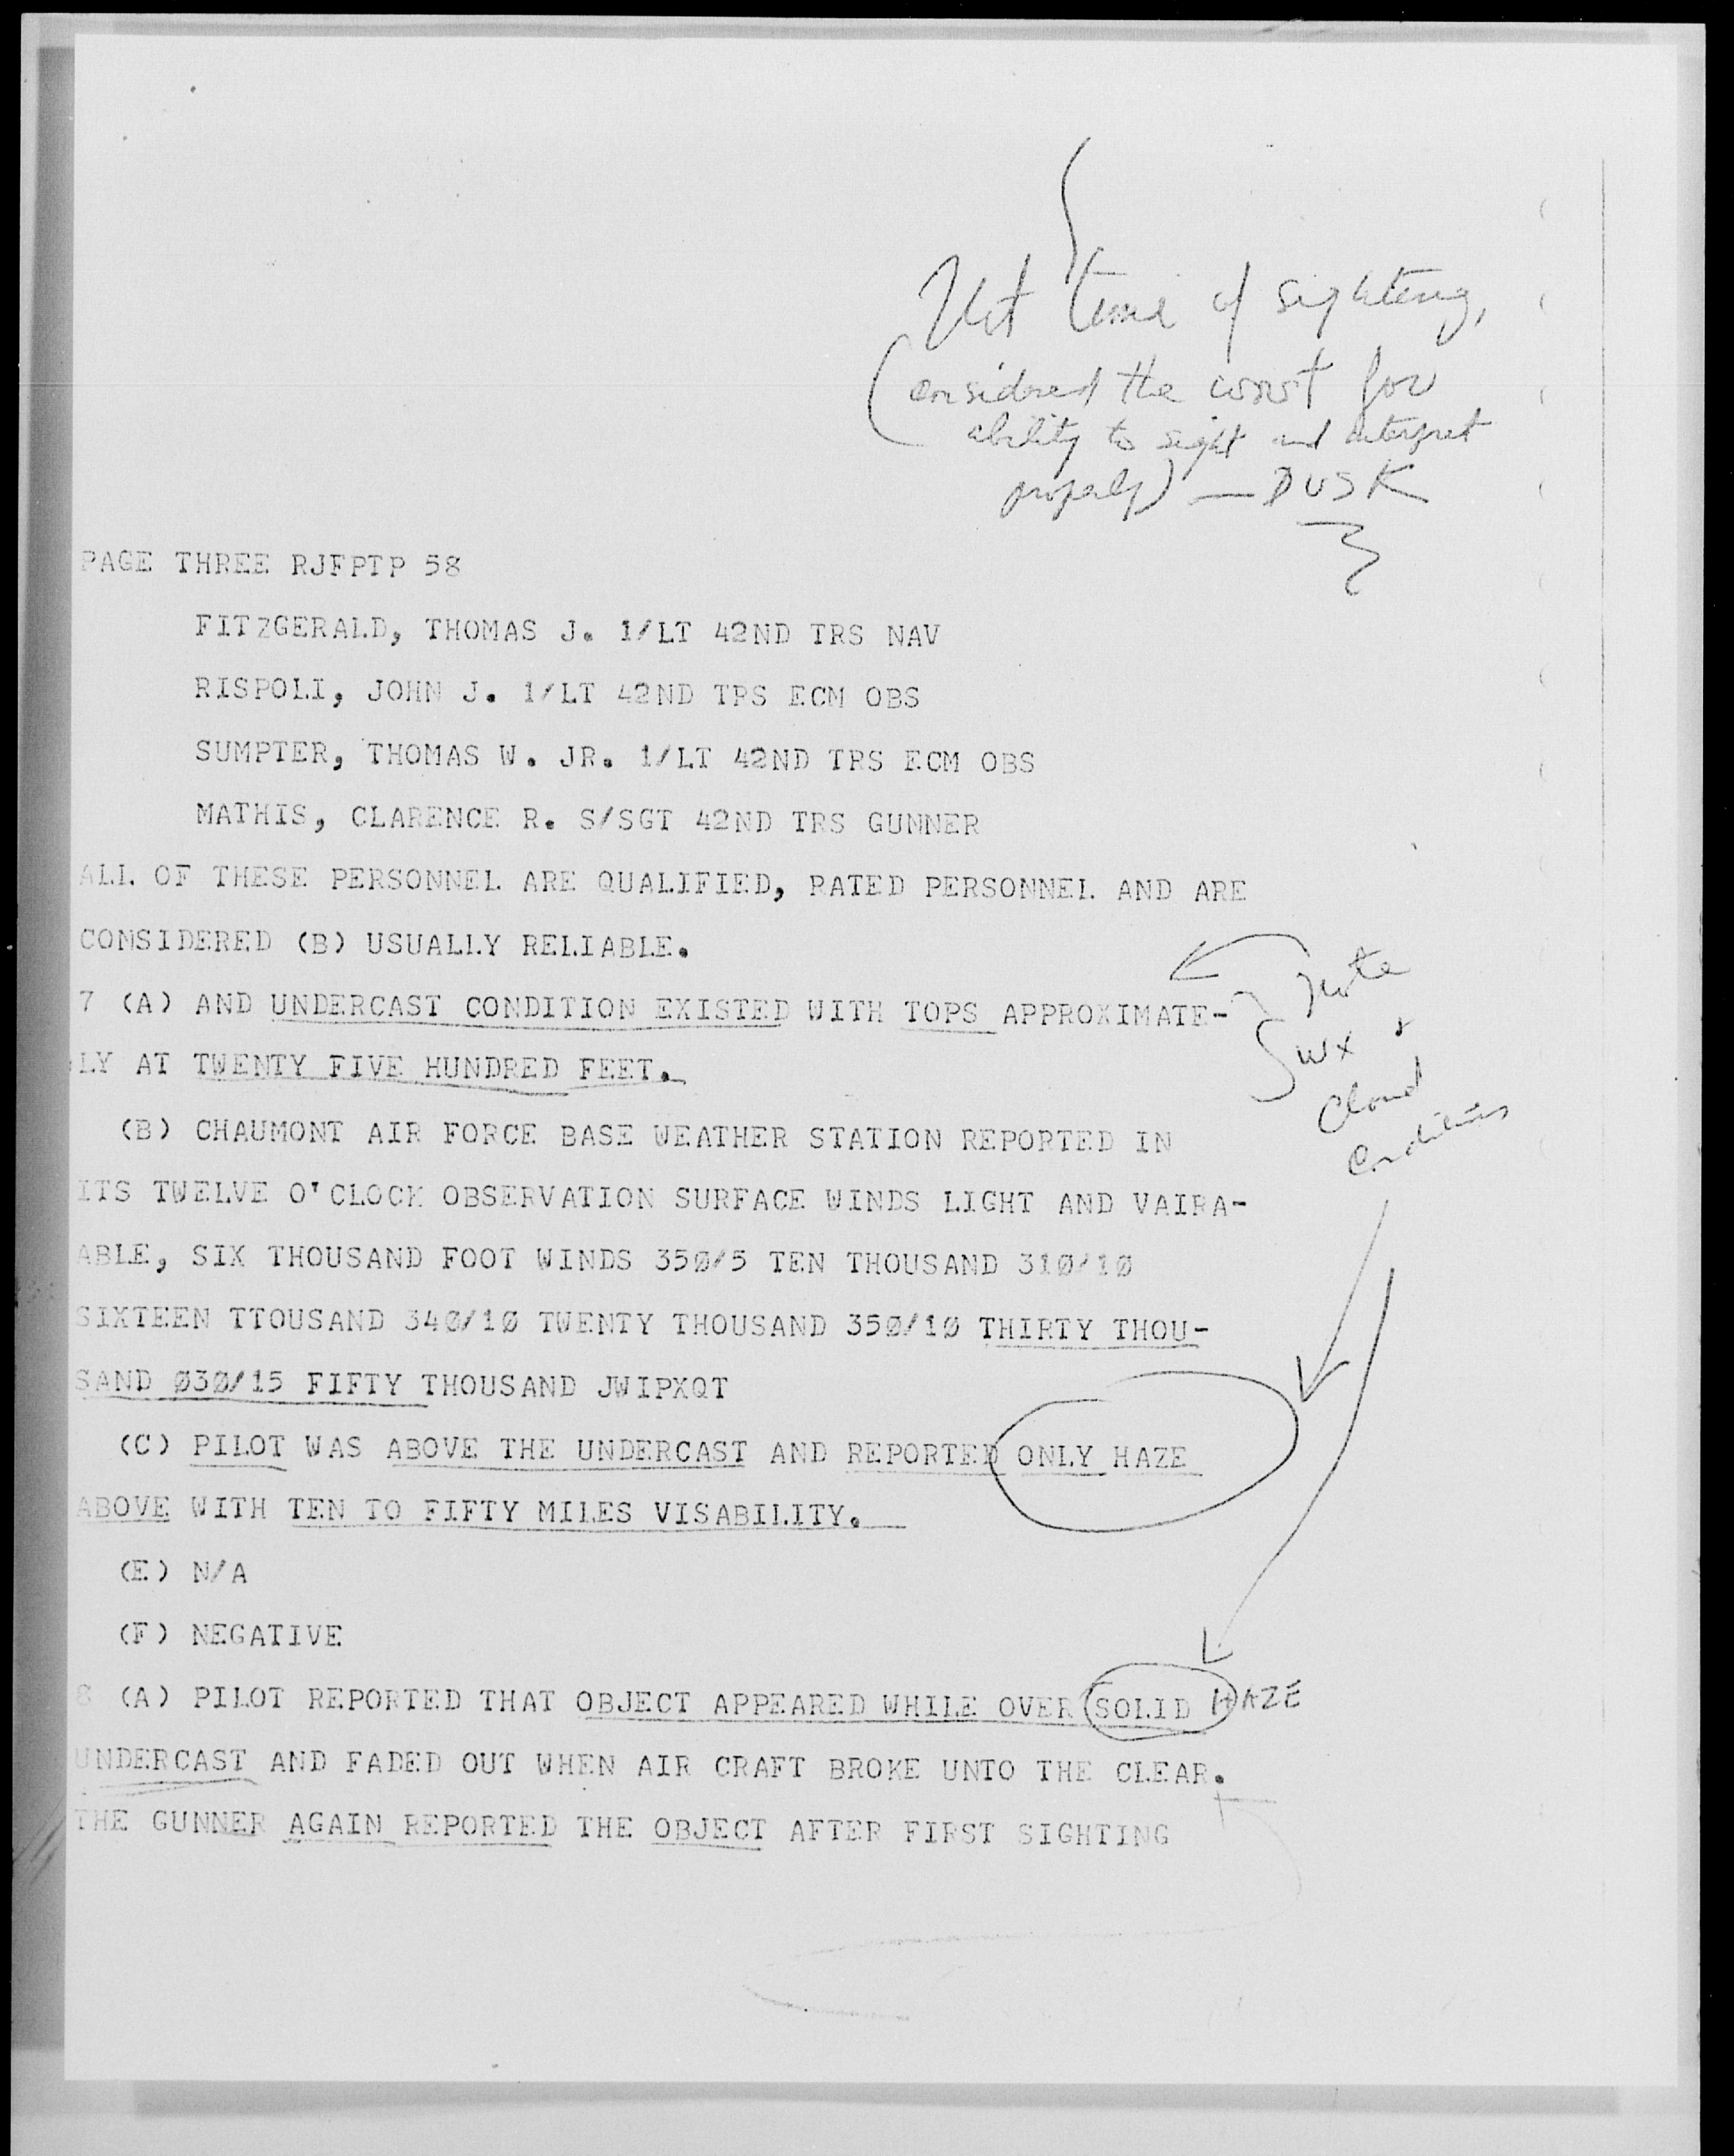 Not time of sighting,
(considered the worst for
ability to sight and interpret
properly) — DUSK
PAGE THREE RJFPTP 58
FITZGERALD, THOMAS J. 1/LT 42ND TRS NAV
RISPOLI, JOHN J. 1/LT 42ND TRS ECM OBS
SUMPTER, THOMAS W. JR. 1/LT 42ND TRS ECM OBS
MATHIS, CLARENCE R. S/SGT 42ND TRS GUNNER
ALL OF THESE PERSONNEL ARE QUALIFIED, RATED PERSONNEL AND ARE
CONSIDERED (B) USUALLY RELIABLE.
7 (A) AND UNDERCAST CONDITION EXISTED WITH TOPS APPROXIMATE-
LY AT TWENTY FIVE HUNDRED FEET.
Note
wx &
Cloud
Conditions
(B) CHAUMONT AIR FORCE BASE WEATHER STATION REPORTED IN
ITS TWELVE O'CLOCK OBSERVATION SURFACE WINDS LIGHT AND VAIRA-
ABLE, SIX THOUSAND FOOT WINDS 35Ø/5 TEN THOUSAND 31Ø/1Ø
SIXTEEN TTOUSAND 34Ø/1Ø TWENTY THOUSAND 35Ø/1Ø THIRTY THOU-
SAND Ø3Ø/15 FIFTY THOUSAND JWIPXQT
(C) PILOT WAS ABOVE THE UNDERCAST AND REPORTED ONLY HAZE
ABOVE WITH TEN TO FIFTY MILES VISABILITY.
(E) N/A
(F) NEGATIVE
8 (A) PILOT REPORTED THAT OBJECT APPEARED WHILE OVER SOLID HAZE
UNDERCAST AND FADED OUT WHEN AIR CRAFT BROKE UNTO THE CLEAR.
THE GUNNER AGAIN REPORTED THE OBJECT AFTER FIRST SIGHTING